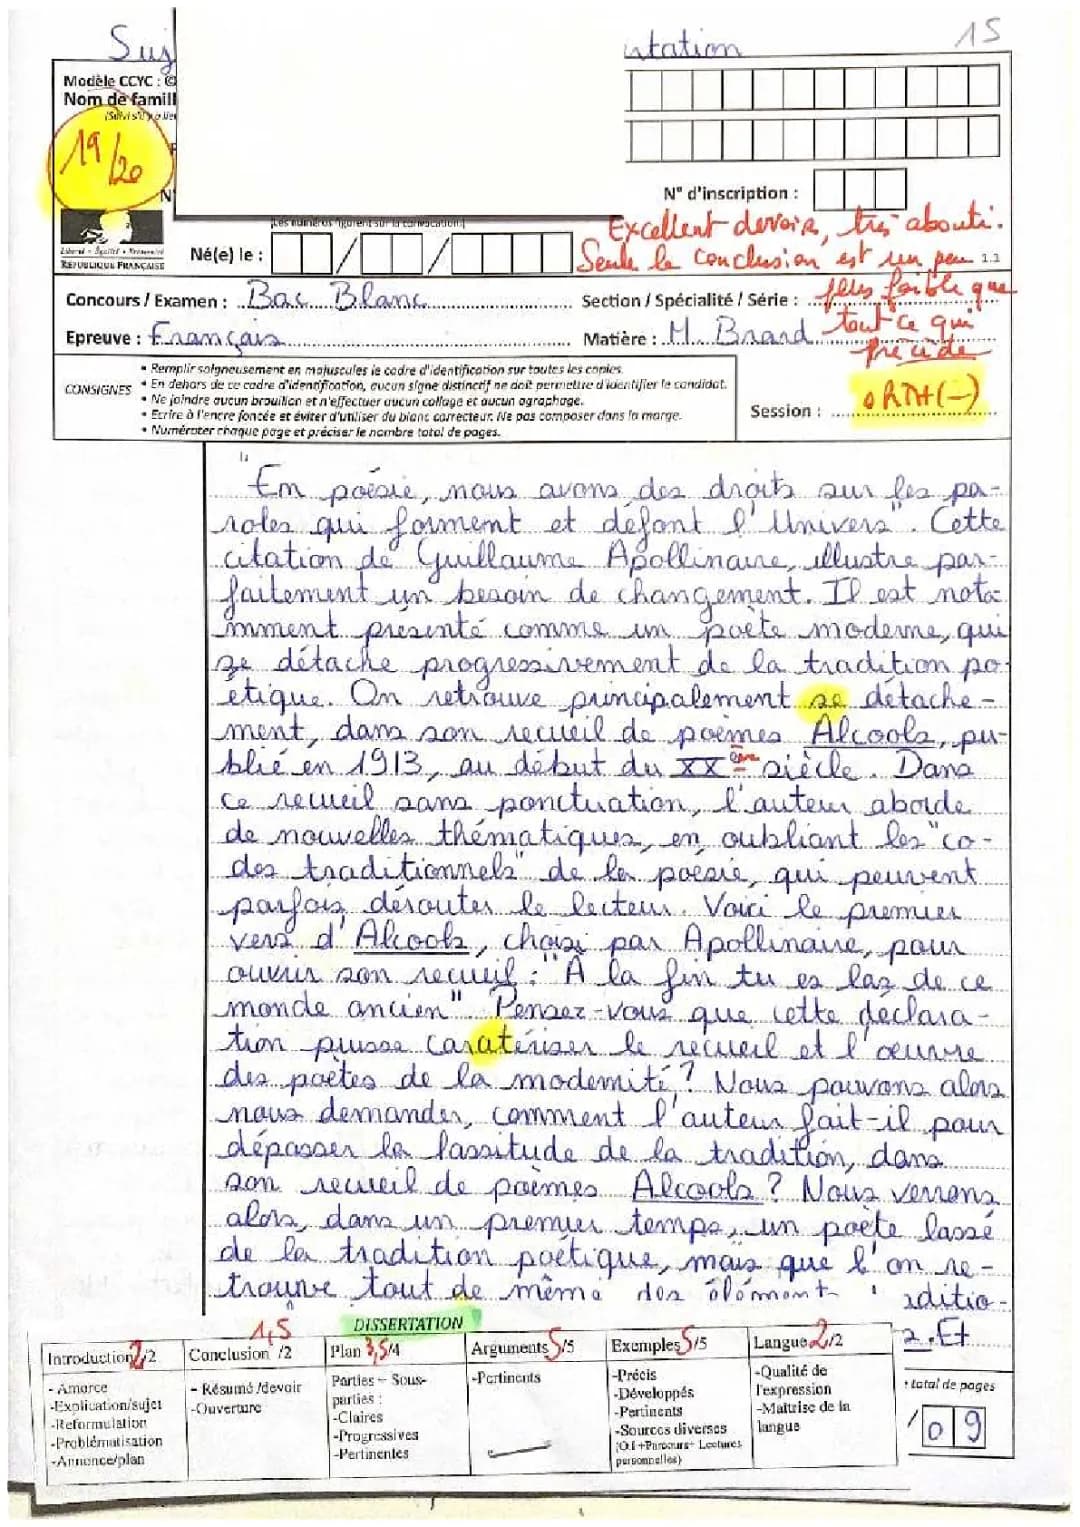 Suj
ntation
15
Modèle CCYC : ©
Nom de famill
(Suivi s'il y a lie
19/20
N°
N° d'inscription :
(Les numéros figurent sur la convocation)
Liberté • Égalité • Fraternité
RÉPUBLIQUE FRANÇAISE
Né(e) le :
1.1
Excellent devoir, très abouti.
Seule la conclusion est un peu
plus faible que
tout ce qui
précède
Concours / Examen : Bac Blanc
Section / Spécialité / Série :
Epreuve : Français
Matière : M. Brand
CONSIGNES
• Remplir soigneusement en majuscules le cadre d'identification sur toutes les copies.
• En dehors de ce cadre d'identification, aucun signe distinctif ne doit permettre d'identifier le candidat.
• Ne joindre aucun brouillon et n'effectuer aucun collage et aucun agraphage.
• Ecrire à l'encre foncée et éviter d'utiliser du blanc correcteur. Ne pas composer dans la marge.
• Numéroter chaque page et préciser le nombre total de pages.
Session :
ORTH(-)
"En poésie, nous avons des droits sur les pa-
roles qui forment et défont l'Univers". Cette
citation de Guillaume Apollinaire, illustre par-
faitement un besoin de changement. Il est nota
mment présenté comme un poète moderne, qui
se détache progressivement de la tradition po-
étique. On retrouve principalement se détache-
ment, dans son recueil de poèmes Alcools, pu-
blié en 1913, au début du XXème siècle. Dans
ce recueil sans ponctuation, l'auteur aborde
de nouvelles thématiques, en oubliant les "co-
des traditionnels" de la poésie, qui peuvent
parfois dérouter le lecteur. Voici le premier
vers d'Alcools, choisi par Apollinaire, pour
ouvrir son recueil : "À la fin tu es las de ce
monde ancien". Pensez-vous que cette déclara-
tion puisse caratériser le recueil et l'œuvre
des poètes de la modernité ? Nous pouvons alors
nous demander, comment l'auteur fait-il pour
dépasser la lassitude de la tradition, dans
son recueil de poèmes Alcools ? Nous verrons
alors, dans un premier temps, un poète lassé
de la tradition poétique, mais que l'on re-
trouve tout de même des élément
aditio-
Et
DISSERTATION
Introduction 2/2
Conclusion 1,5 /2
Plan 3,5/4
Arguments 5/5
Exemples 5/5
Langue 2/2
- Amorce
-Explication/sujet
-Reformulation
-Problématisation
-Annonce/plan
- Résumé /devoir
-Ouverture
Parties – Sous-
parties :
-Claires
-Progressives
-Pertinentes
-Pertinents
-Précis
-Développés
-Pertinents
-Sources diverses
(O.I +Parcours+ Lectures
personnelles)
-Qualité de
l'expression
-Maîtrise de la
langue
total de pages
/09